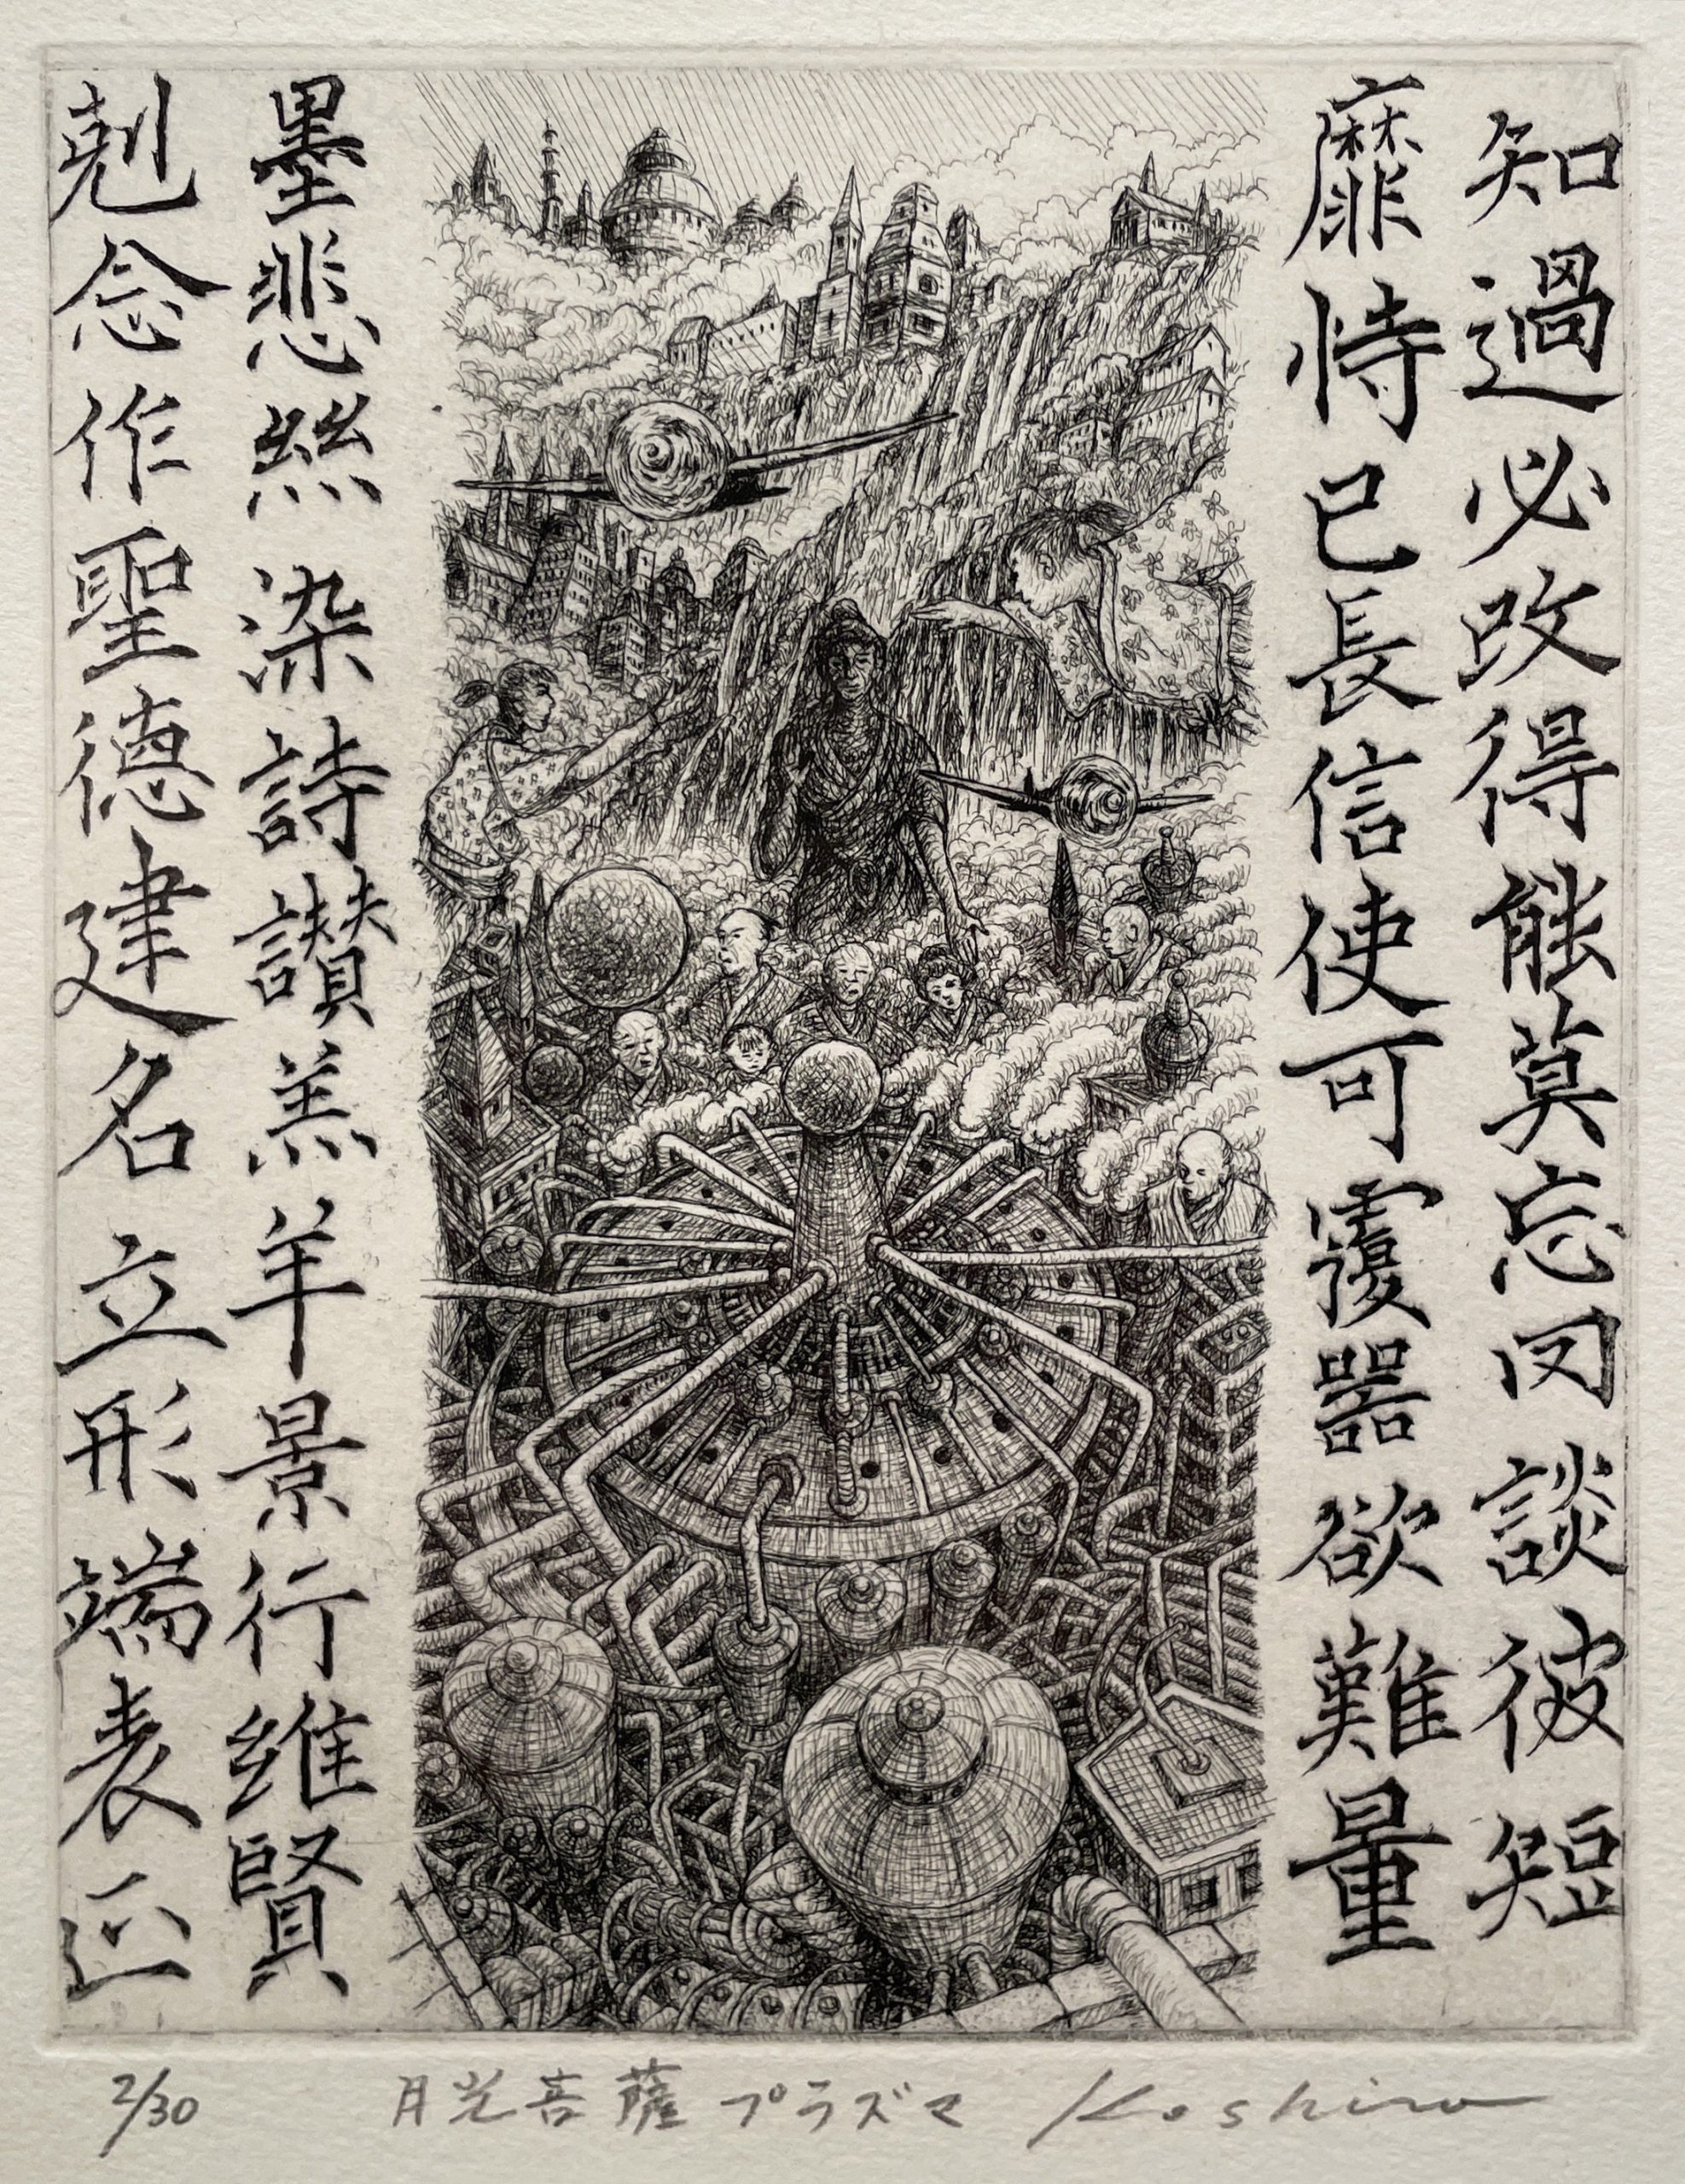 知過必改得能莫忘罔談彼短
靡恃己長信使可覆器欲難量
墨悲絲染詩讃羔羊景行維賢
剋念作聖徳建名立形端表正
2/30 月光菩薩プラズマ Koshiro